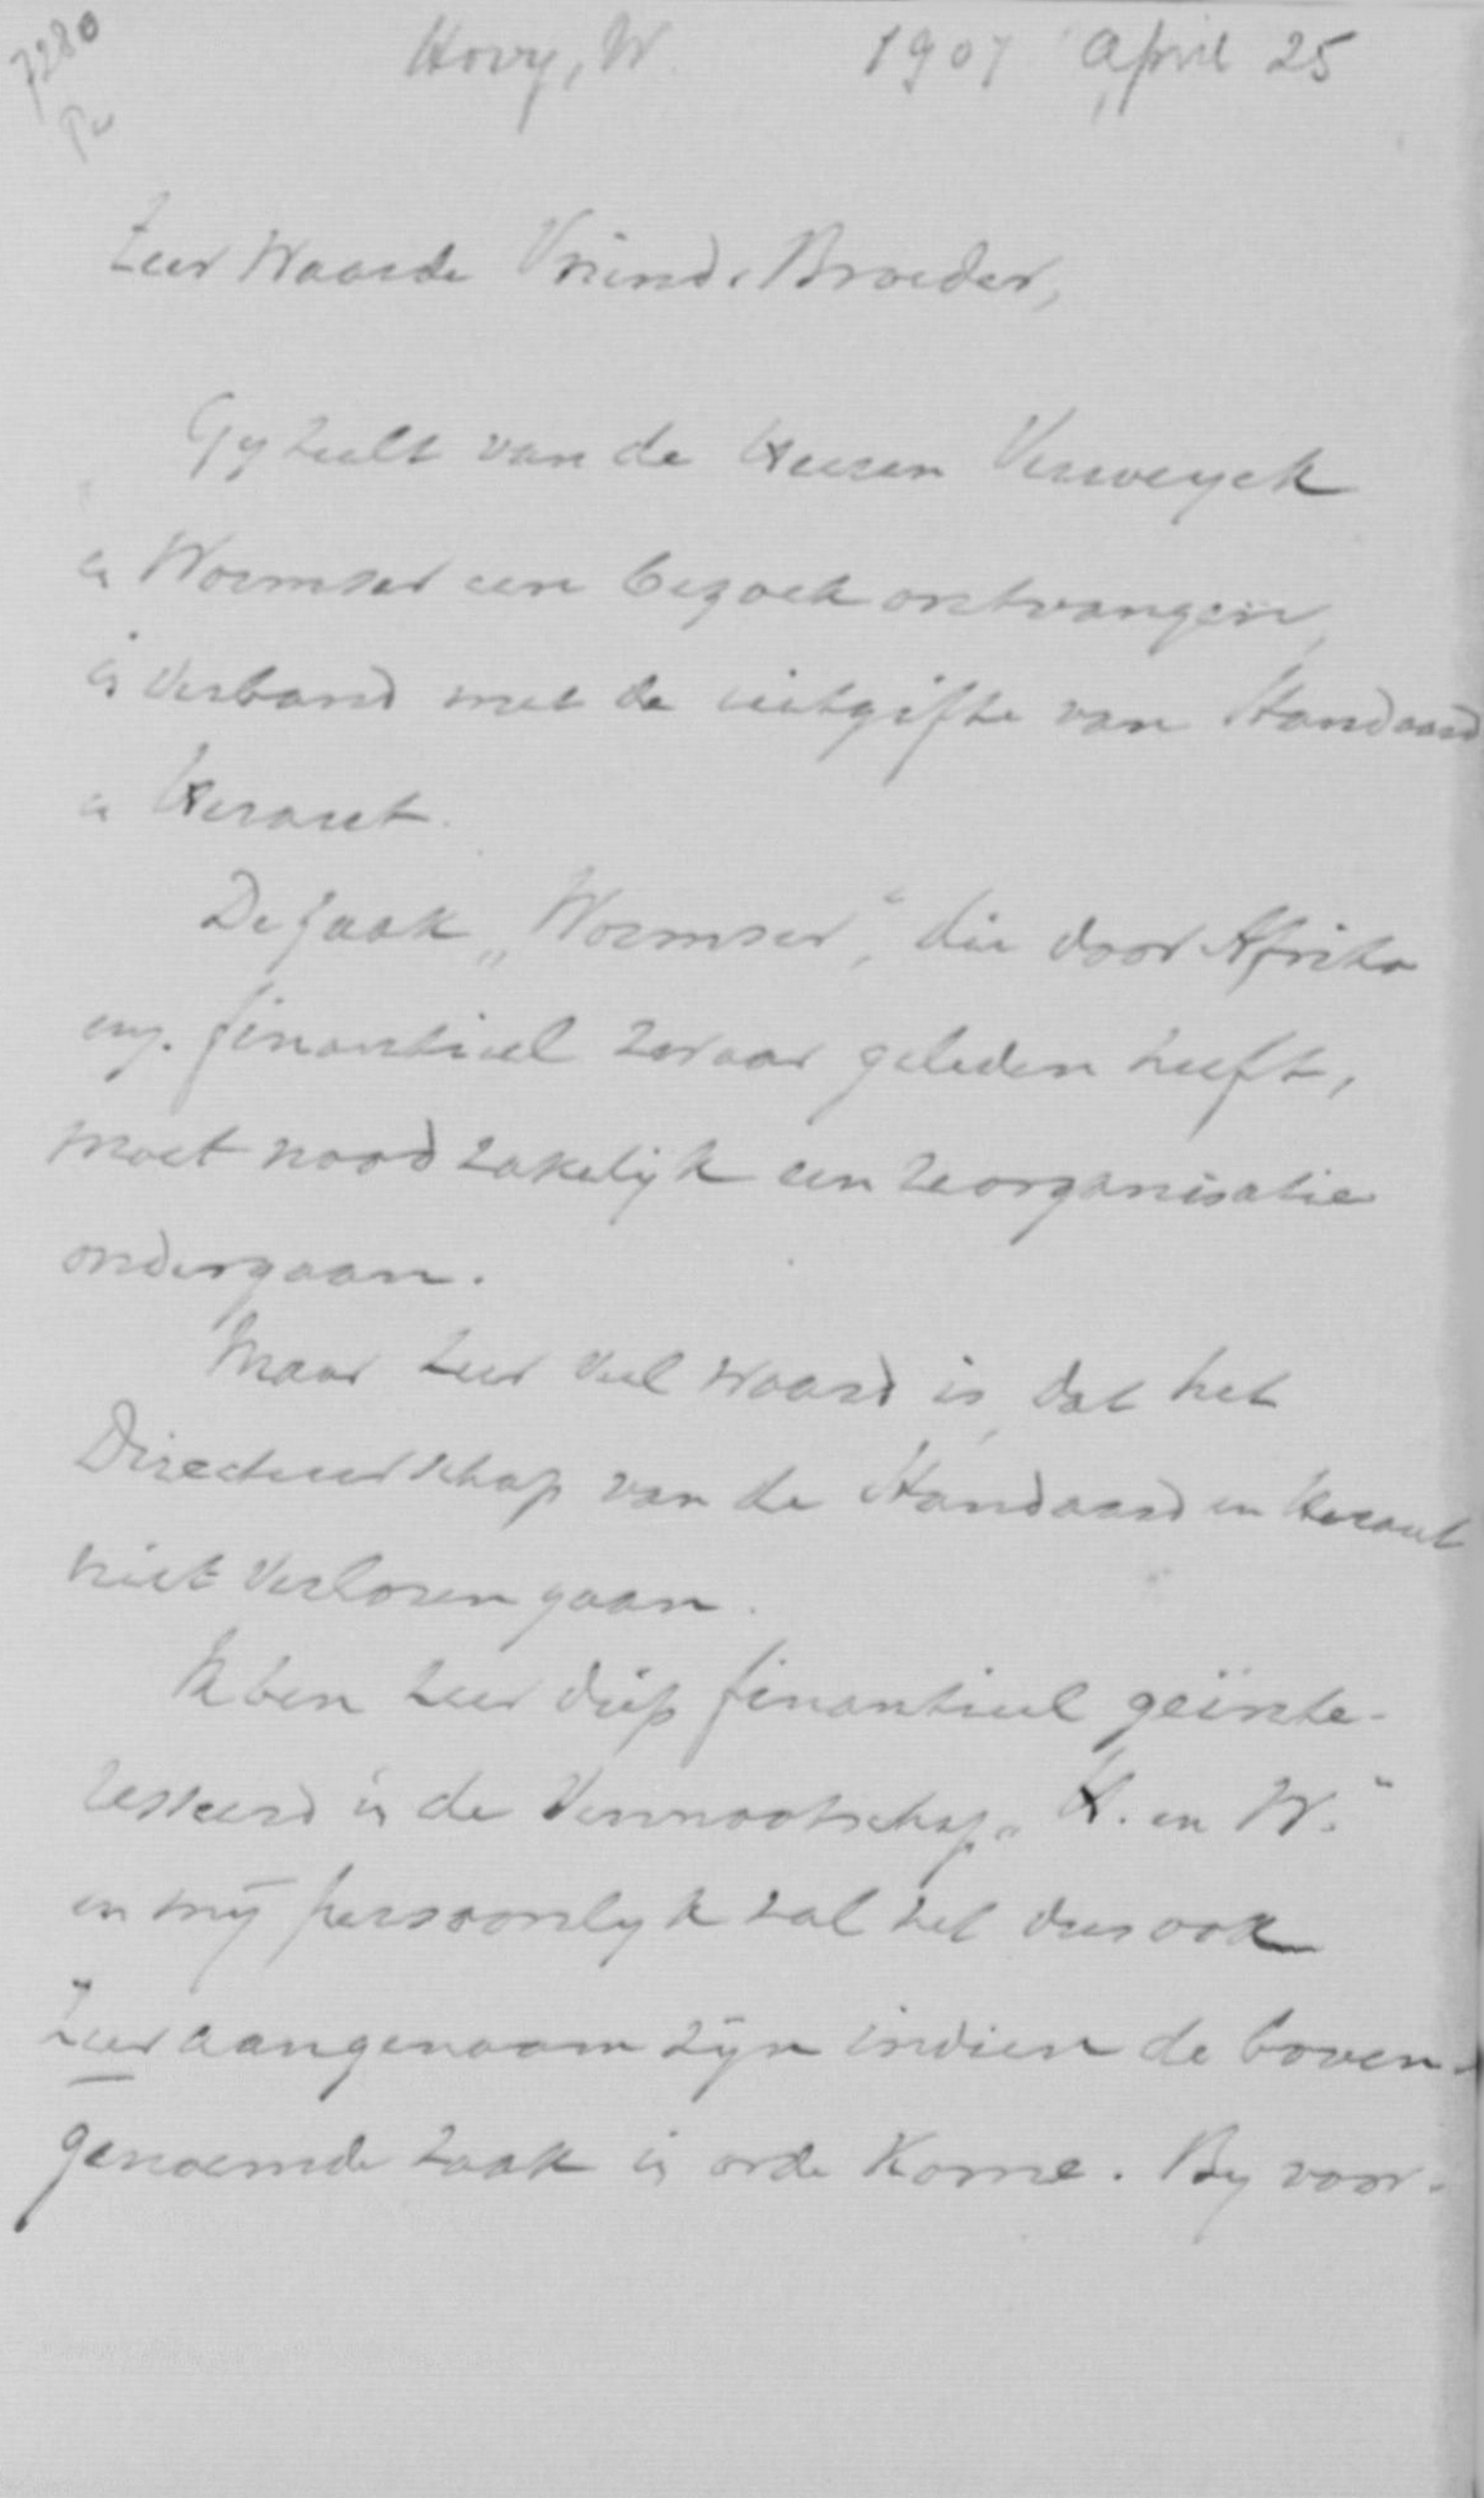 7280
Hovy, W. 1907 April 25
Zeer Waarde Vriend & Broeder,
Gy hebt van de Heeren Verweyck
en Wormser een bezoek ontvangen,
in verband met de uitgifte van Standaard
en Heraut.
De zaak „Wormser", die door Afrika
enz. finantieel zwaar geleden heeft,
moet noodzakelijk een reorganisatie
ondergaan.
Maar zeer veel waard is, dat het
Directeurschap van de Standaard en Heraut
niet verloren gaan.
Ik ben zeer diep finantieel geïnte-
resseerd in de Vennootschap „H. en W."
en mij persoonlyk zal het dus ook
zeer aangenaam zyn indien de boven-
genoemde zaak in orde kome. By voor-